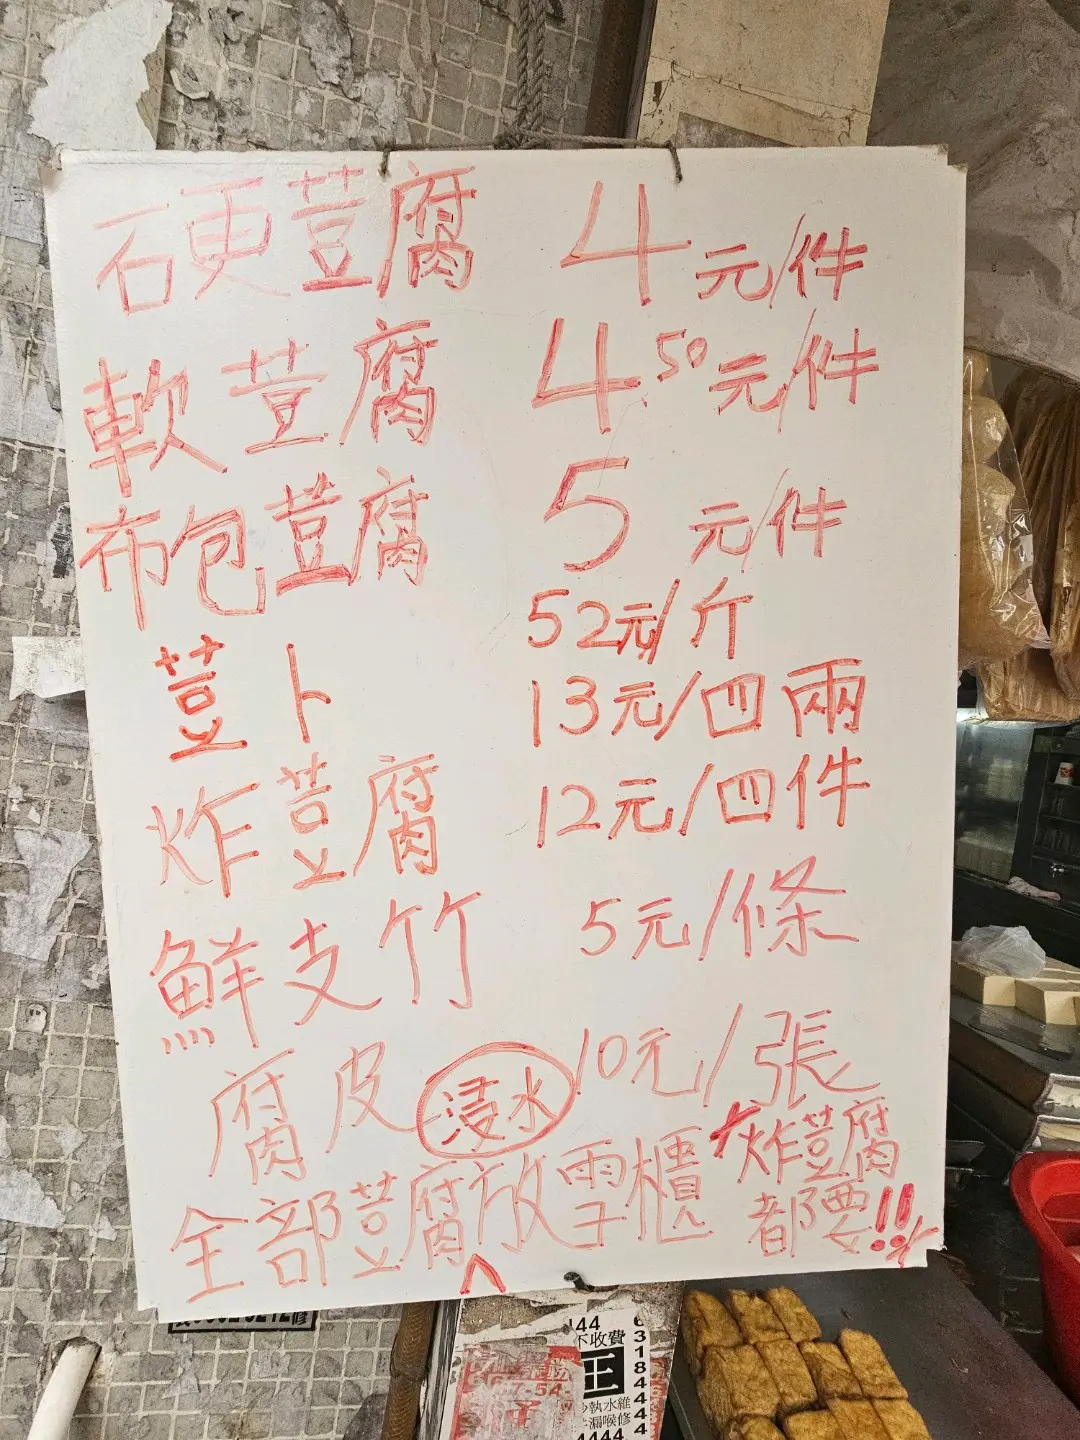 硬荳腐 4元/件
軟荳腐 4.50元/件
布包荳腐 5元/件
52元/斤
荳卜 13元/四兩
炸荳腐 12元/四件
鮮支竹 5元/條
腐皮 浸水 10元/張
全部荳腐放雪櫃
炸荳腐
都要!!
44
不收費
王
6318444
水維
漏喉修
4444